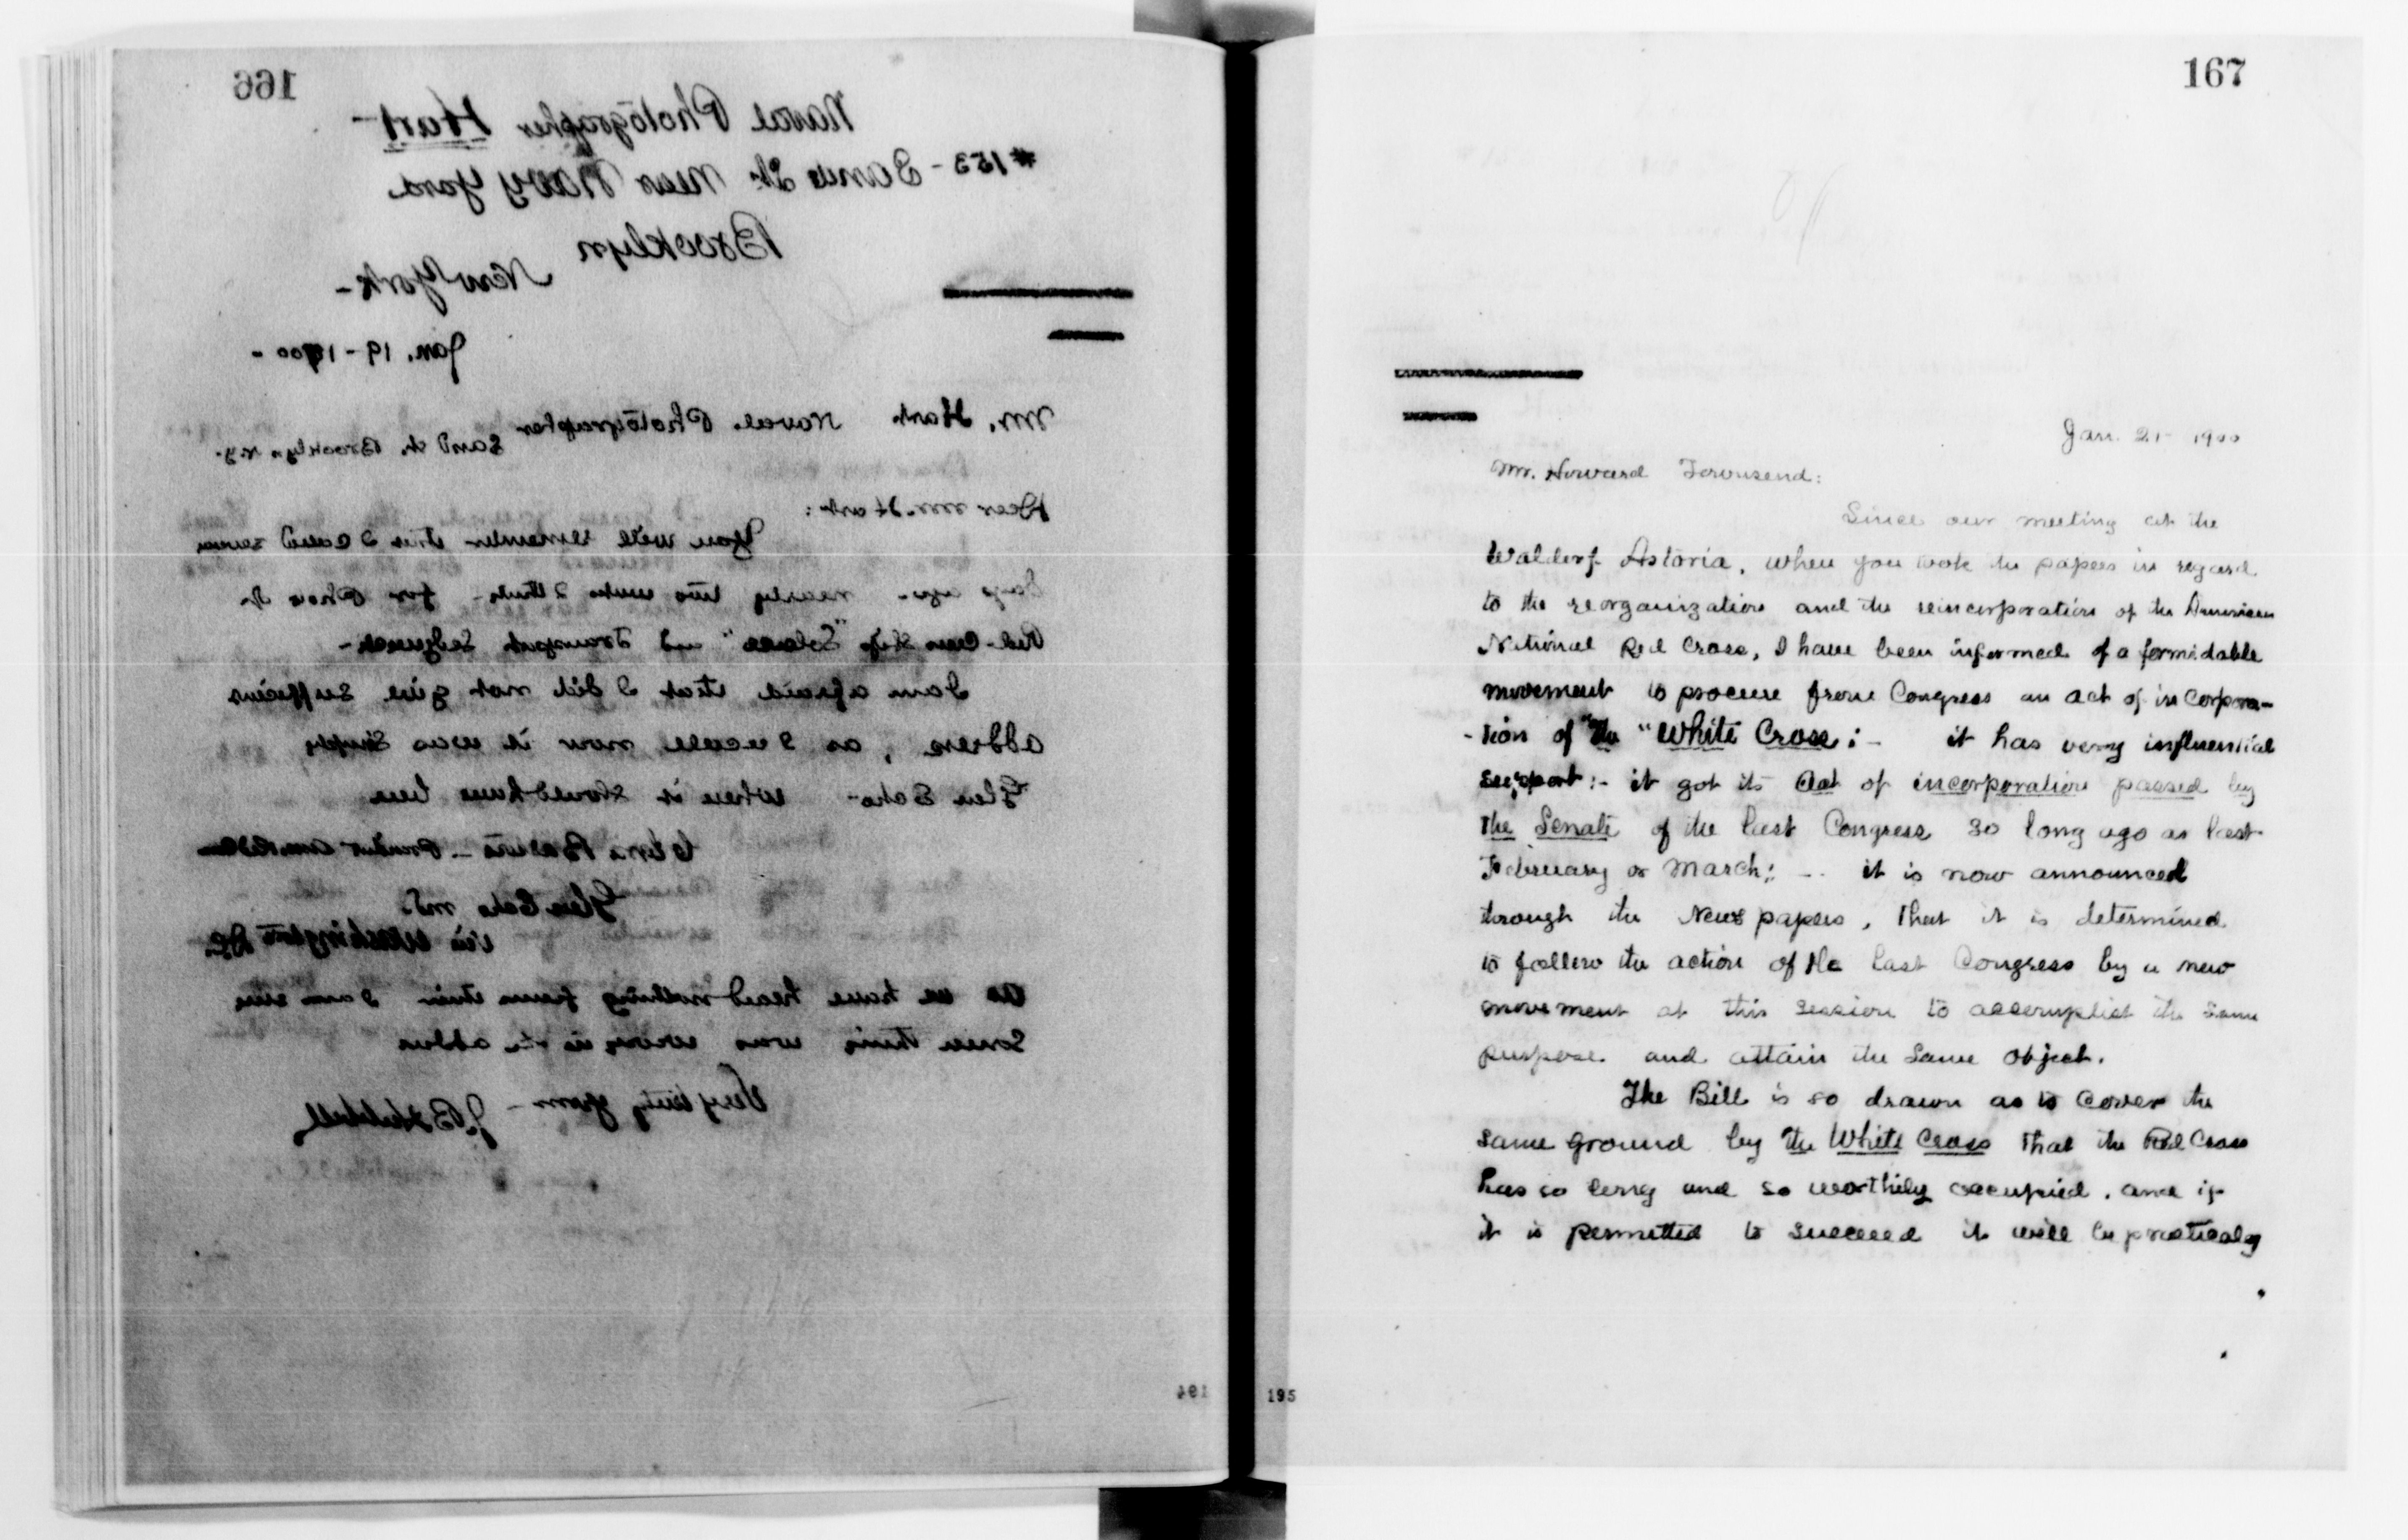 166
Naval Photographer Hart-
#153 - Sands St. Near Navy Yard
Brooklyn
New York-
Jan. 19 - 1900 -
Mr. Hart Naval Photographer
Sand St. Brooklyn N.Y.
Dear Mr. Hart:
You will remember that I called
days ago - nearly two weeks I think - for Photo
Red Cross Ship "Solace" and Transport
I am afraid that I did not give
address, as I recall now it was simply
Glen Echo - when it should have been
Clara Barton -
Glen Echo Md.
Via Washington D.C.
As we have heard nothing from them I am sure
Some thing was wrong in the address
Very truly yours - J. B. Hubbell
194
167
Jan. 21 - 1900
Mr. Howard Townsend:
Since our meeting at the
Waldorf Astoria, when you took the papers in regard
to the reorganization and the reincorporation of the American
National Red Cross, I have been informed of a formidable
movement to procure from Congress an act of incorpora-
-tion of "The "White Cross: - it has very influential
support: - it got its Act of incorporation passed by
the Senate of the last Congress so long ago as last
February or March: - - it is now announced
through the News papers, that it is determined
to follow the action of the last Congress by a new
movement at this session to accomplish the same
purpose and attain the same object.
The Bill is so drawn as to cover the
same ground by the White Cross that the Red Cross
has so long and so worthily occupied, and if
it is permitted to succeed it will be practicaly
195